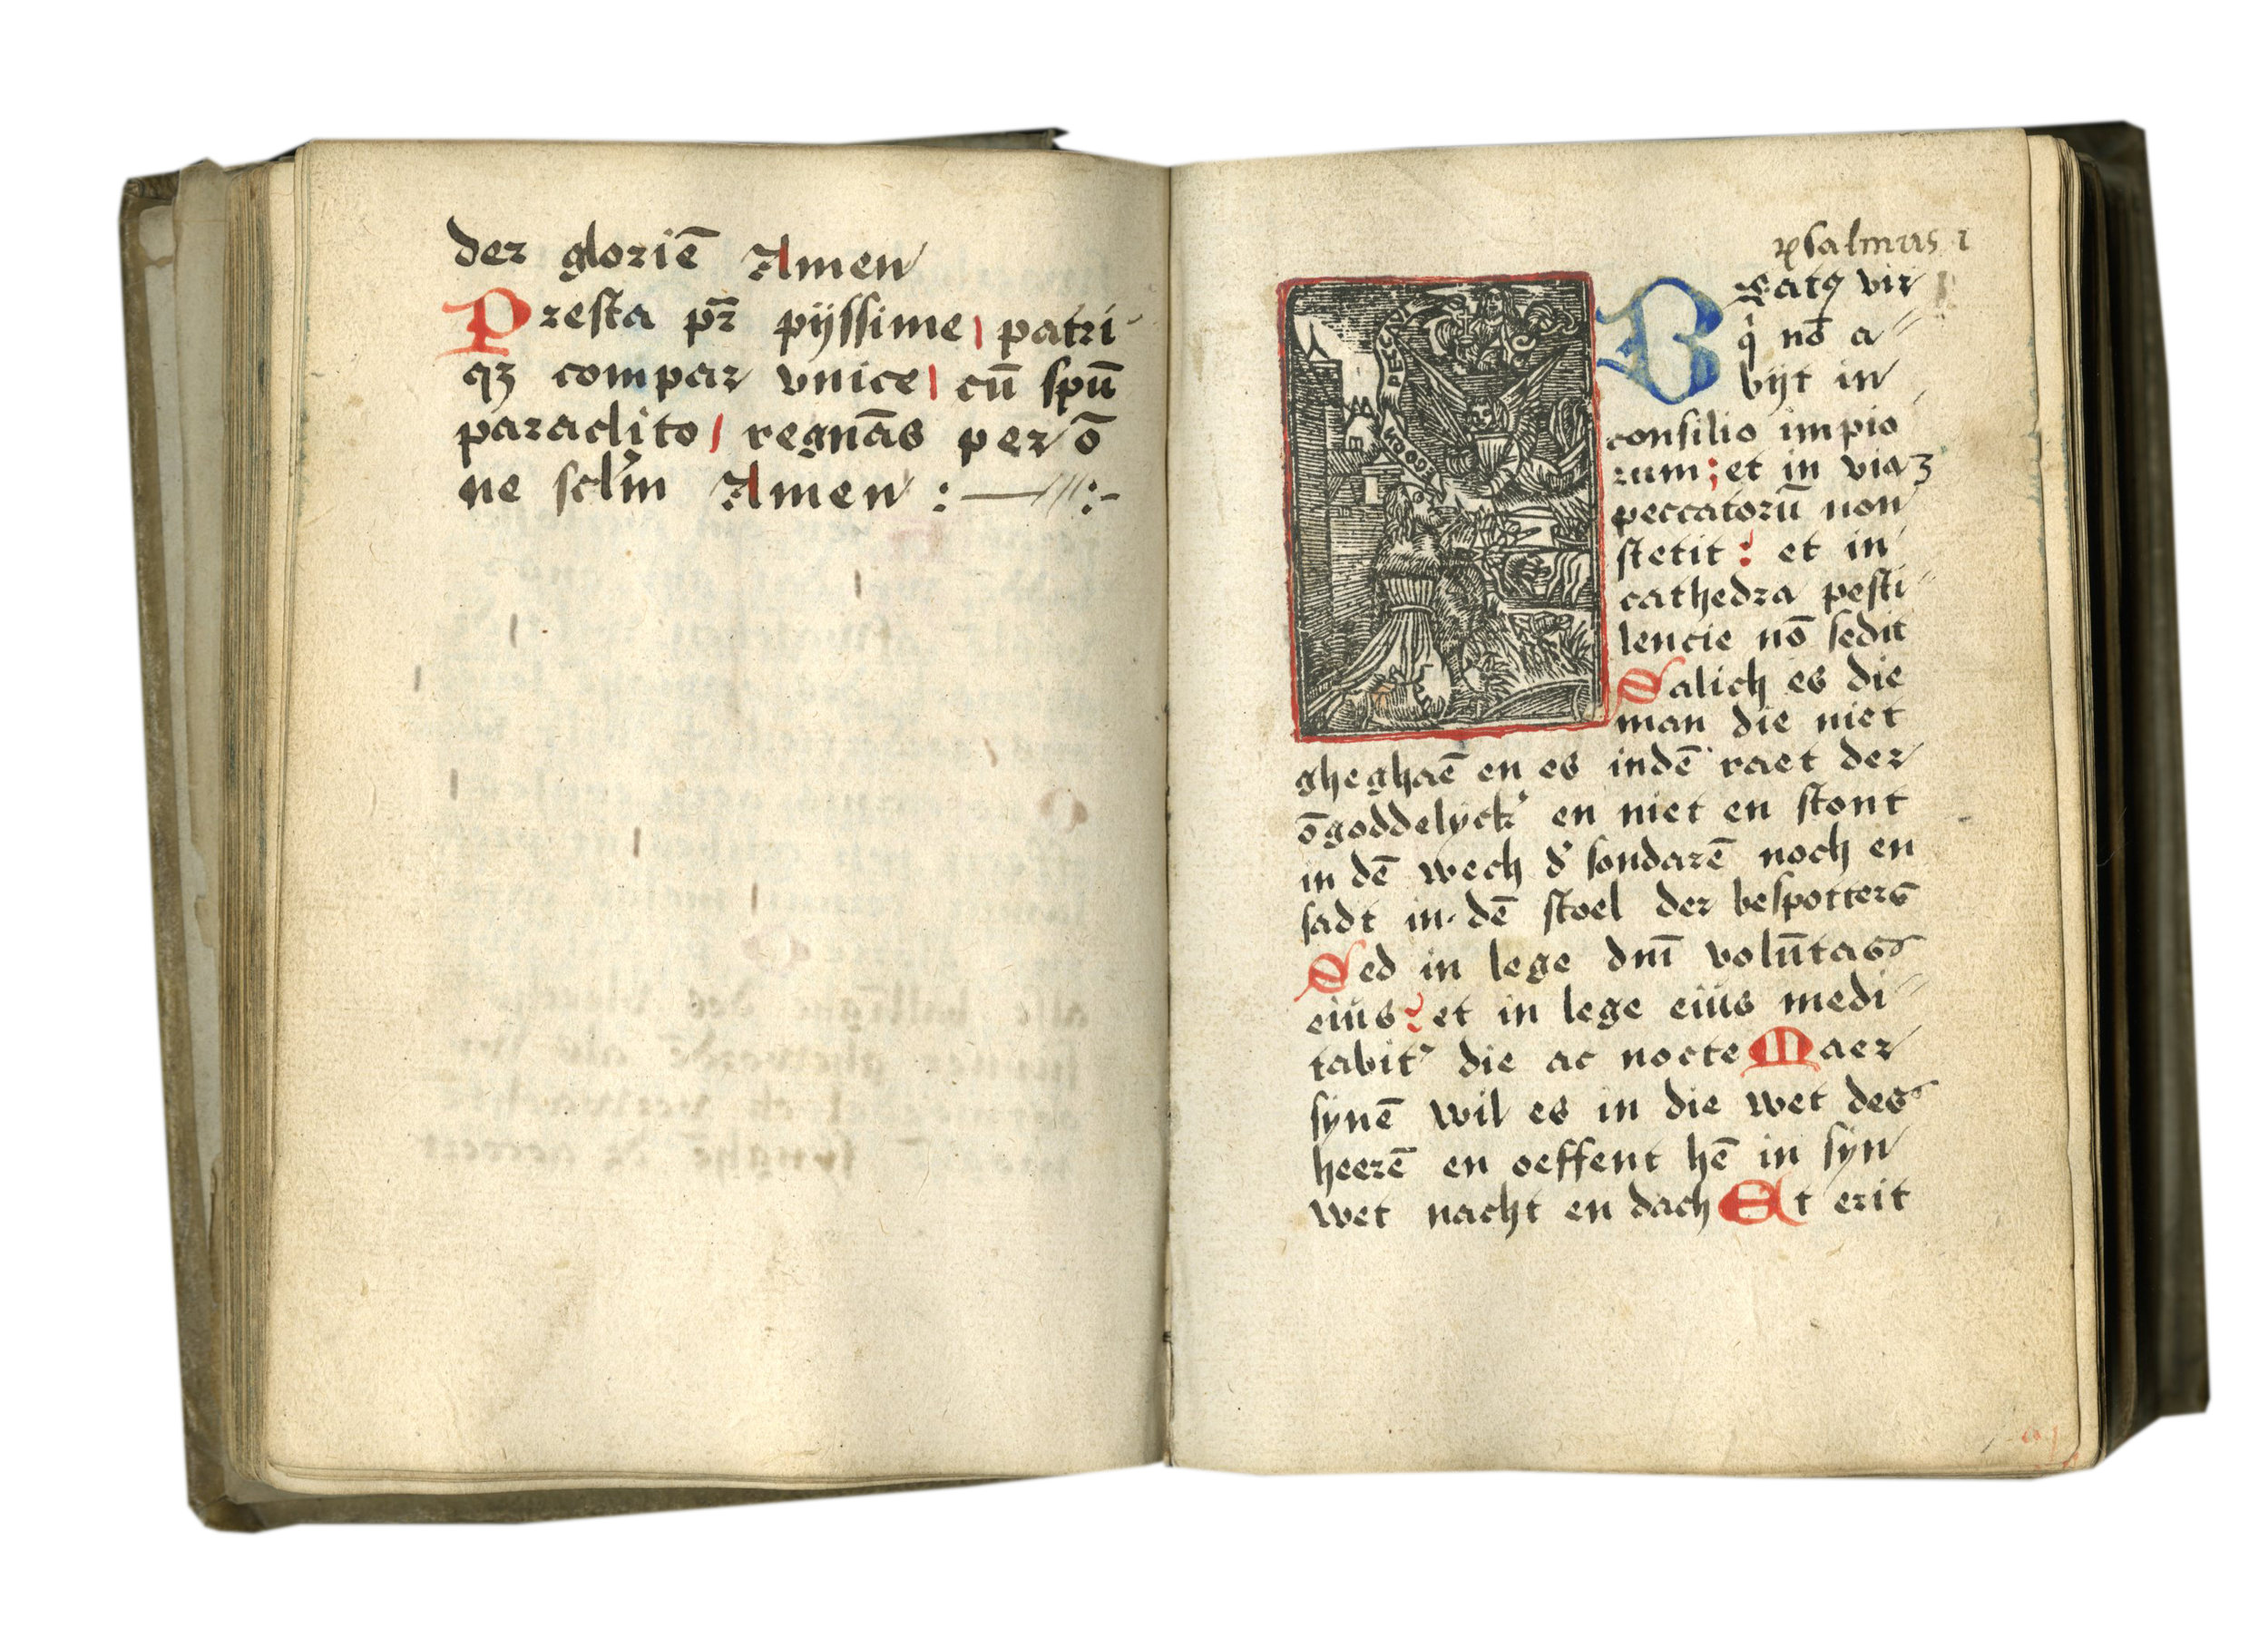 der gloriē Amen
Presta pr̄ pijssime patri
qꝫ compar vnice cū spū
paraclito regnās per ō
ne sclm̄ Amen :
psalmus 1
Beatꝯ vir
qͥ nō a
bijt in
consilio impio
rum; et in viaꝫ
peccatorū non
stetit: et in
cathedra pesti
lencie nō sedit
PECCAVI
Salich es die
man die niet
gheghaē en es indē raet der
ōgoddelijckˀ en niet en stont
in dē wech dˀ sondarē noch en
sadt in dē stoel der bespotters
Sed in lege dnī volūtas
eius: et in lege eius medi
tabitˀ die ac nocte Maer
sijnē wil es in die wet des
heerē en oeffent hē in sijn
wet nacht en dach Et erit